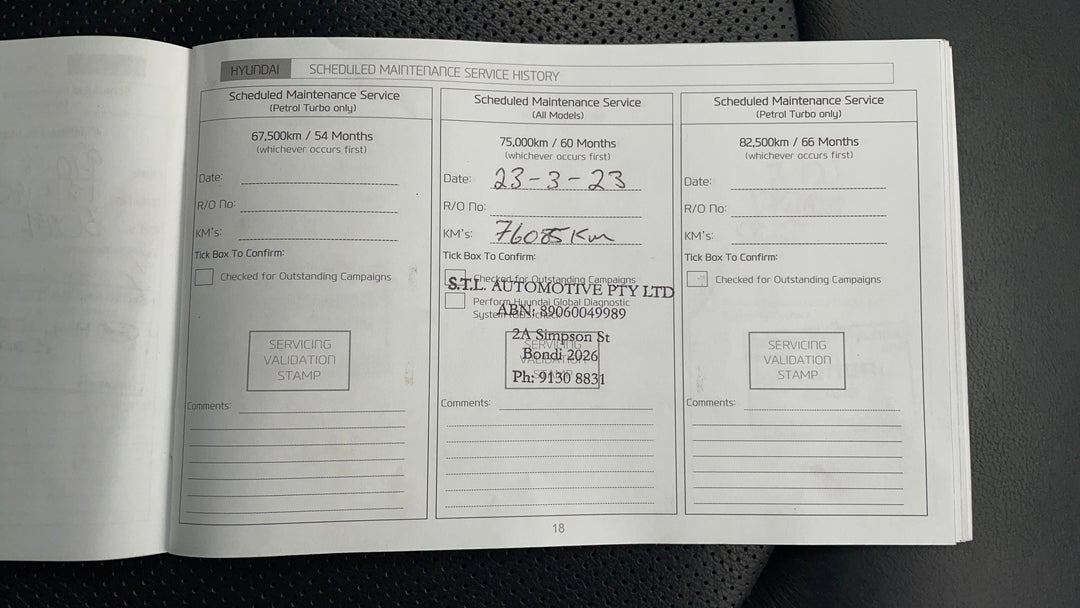 HYUNDAI SCHEDULED MAINTENANCE SERVICE HISTORY
Scheduled Maintenance Service
(Petrol Turbo only)
67,500km / 54 Months
(whichever occurs first)
Date:
R/O No:
KM's:
Tick Box To Confirm:
Checked for Outstanding Campaigns
SERVICING
VALIDATION
STAMP
Comments:
Scheduled Maintenance Service
(All Models)
75,000km / 60 Months
(whichever occurs first)
Date: 23-3-23
R/O No:
KM's: 76085 Km
Tick Box To Confirm:
Checked for Outstanding Campaigns
S.T.L. AUTOMOTIVE PTY LTD
Perform Hyundai Global Diagnostic
System
ABN: 89060049989
2A Simpson St
SERVICING
Bondi 2026
VALIDATION
STAMP
Ph: 9130 8831
Comments:
Scheduled Maintenance Service
(Petrol Turbo only)
82,500km / 66 Months
(whichever occurs first)
Date:
R/O No:
KM's:
Tick Box To Confirm:
Checked for Outstanding Campaigns
SERVICING
VALIDATION
STAMP
Comments:
18